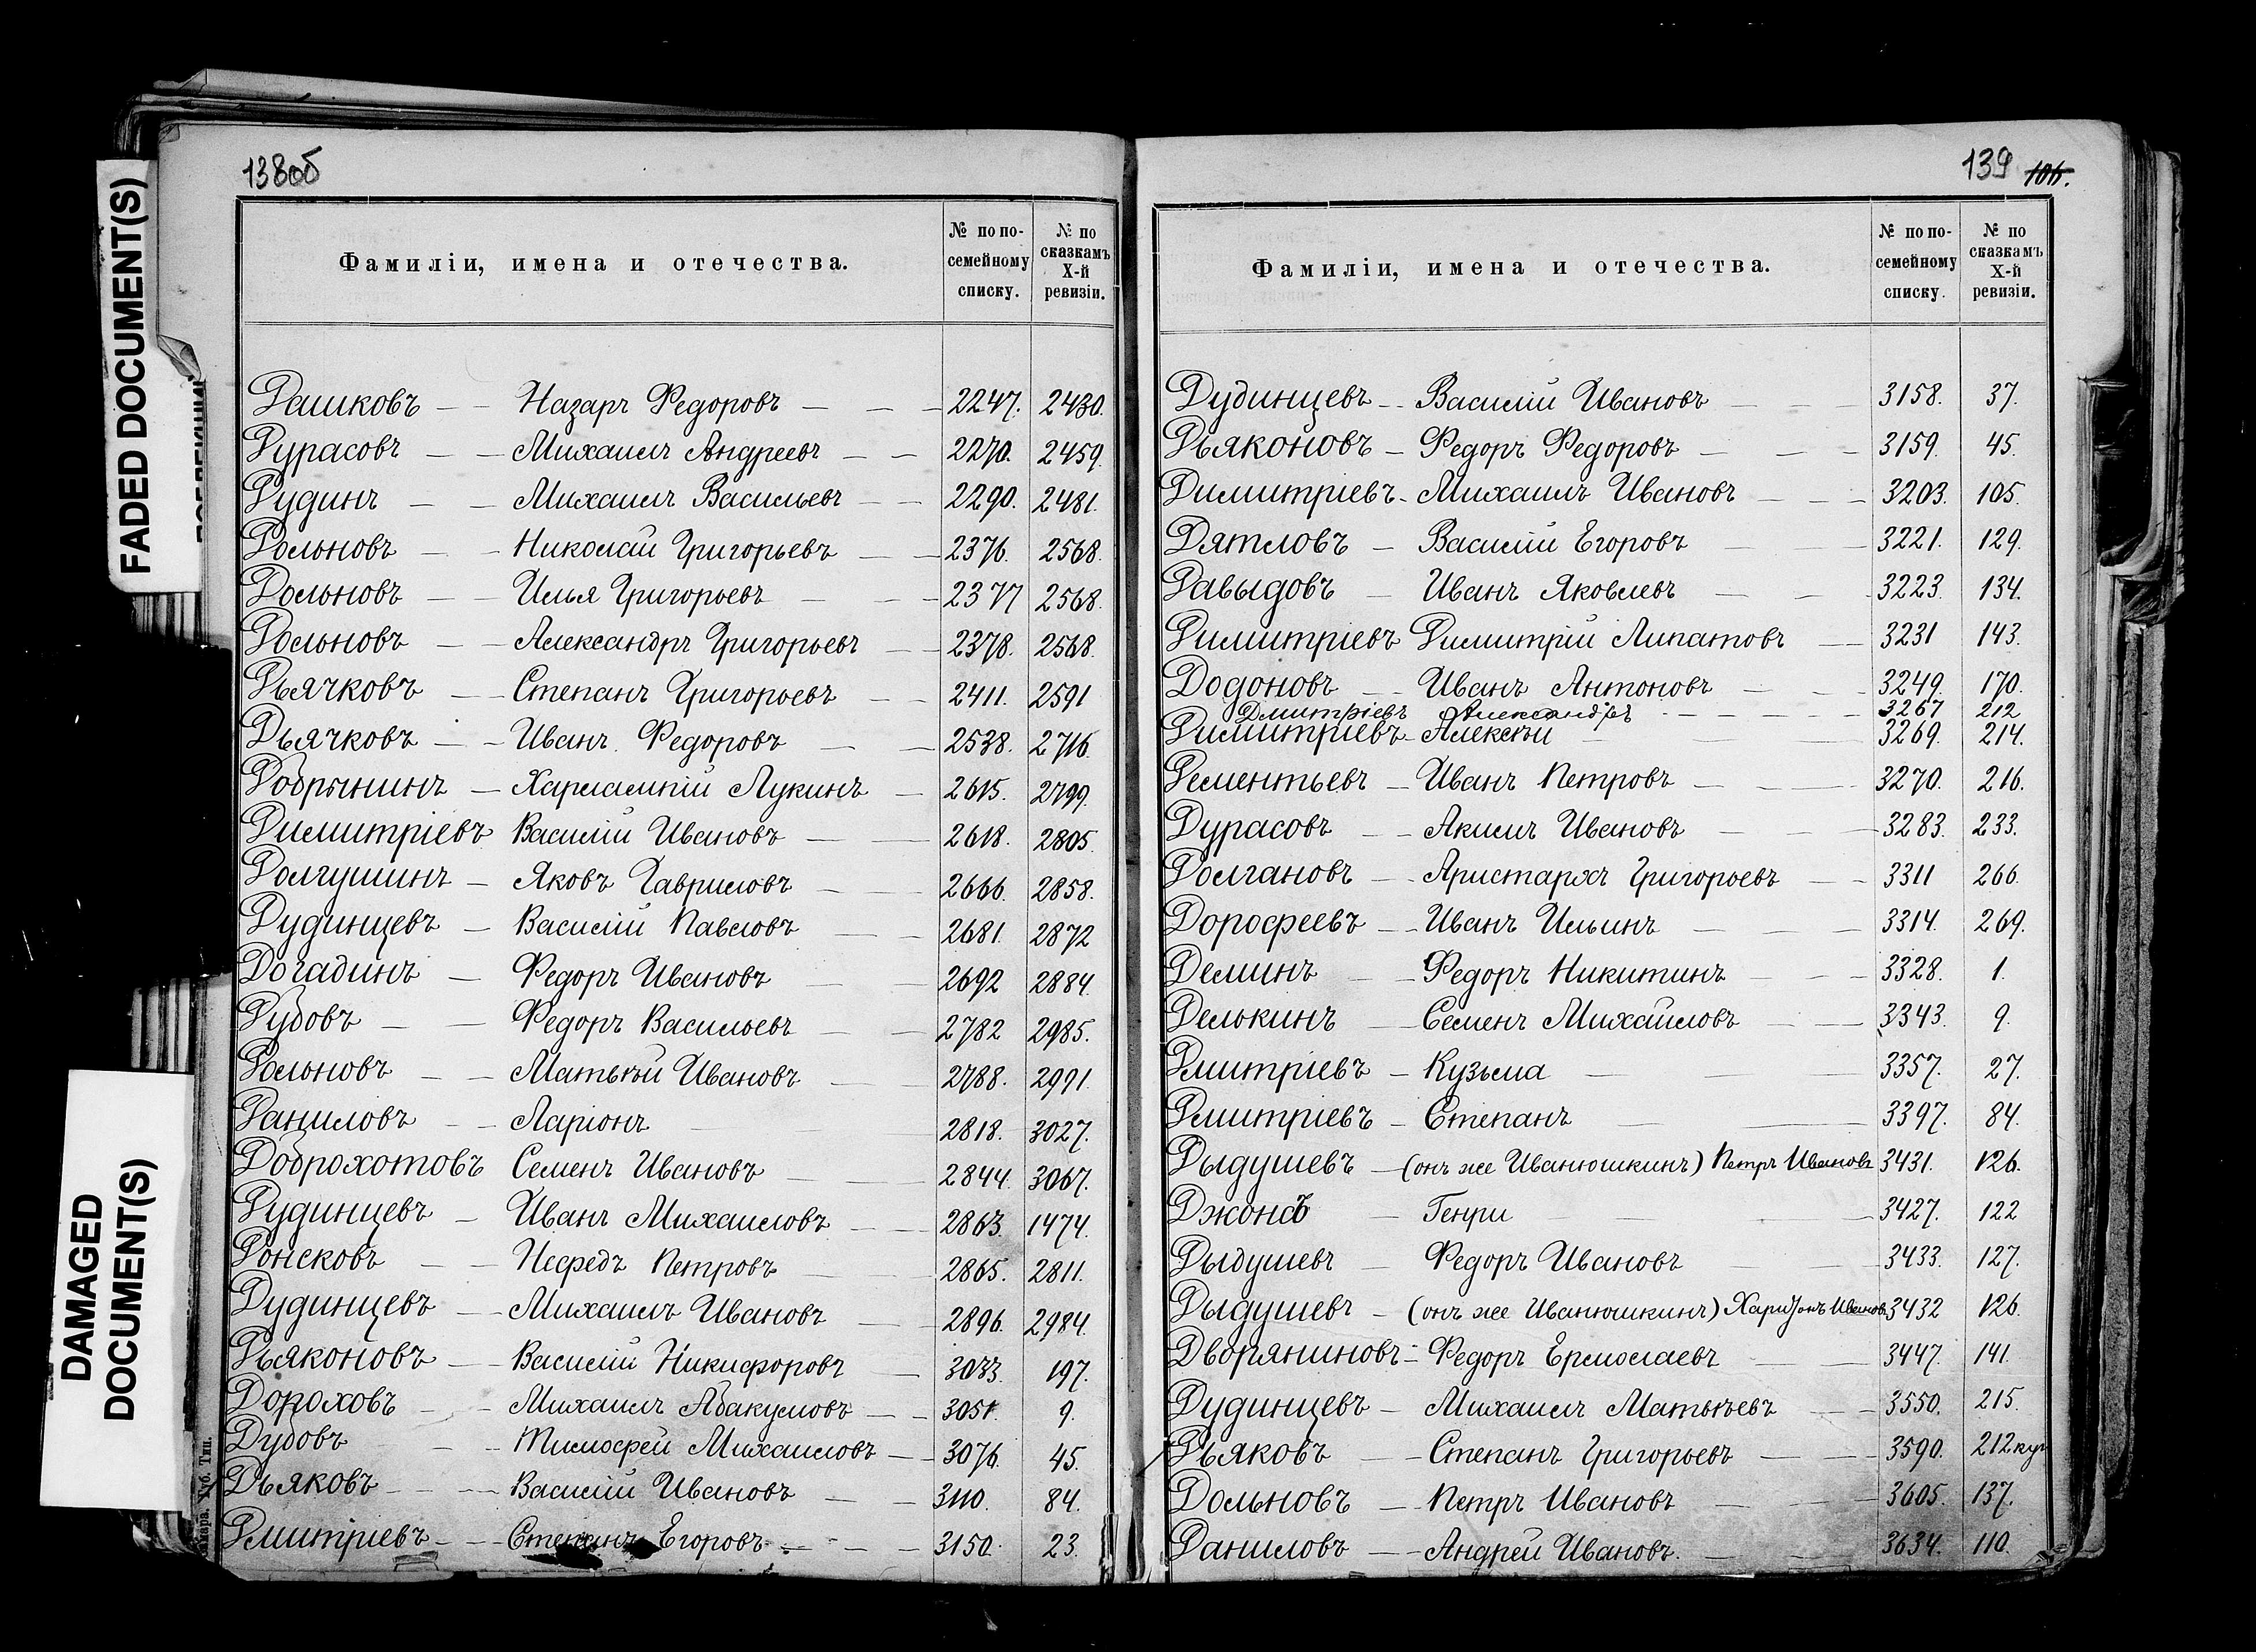 FADED DOCUMENT(S)
DAMAGED
DOCUMENT(S)
138об
Фамиліи, имена и отечества.
№ по по-
семейному
списку.
№ по
сказкамъ
X-й
ревизіи.
Дашковъ — Назаръ Федоровъ — 2247. 2430.
Дурасовъ — Михаилъ Андреевъ — 2270. 2459.
Дудинъ — Михаилъ Васильевъ — 2290. 2481.
Дольновъ — Николай Григорьевъ — 2376. 2568.
Дольновъ — Илья Григорьевъ — 2377 2568.
Дольновъ — Александръ Григорьевъ — 2378. 2568.
Дьячковъ — Степанъ Григорьевъ — 2411. 2591
Дьячковъ — Иванъ Федоровъ — 2538. 2716.
Добрынинъ — Харлампій Лукинъ — 2615. 2799.
Димитріевъ Василій Ивановъ — 2618. 2805.
Долгушинъ — Яковъ Гавриловъ — 2666. 2858.
Дудинцевъ — Василій Павловъ — 2681. 2872
Догадинъ — Федоръ Ивановъ — 2692 2884.
Дубовъ — Федоръ Васильевъ — 2782 2985.
Дольновъ — Матвѣй Ивановъ — 2788. 2991.
Даниловъ — Ларіонъ — 2818. 3027.
Доброхотовъ Семенъ Ивановъ — 2844. 3067.
Дудинцевъ — Иванъ Михаиловъ — 2863. 1474.
Донсковъ — Нефедъ Петровъ — 2865. 2811.
Дудинцевъ — Михаилъ Ивановъ — 2896. 2984.
Дьяконовъ — Василій Никифоровъ — 3033. 197.
Дороховъ — Михаилъ Абакумовъ — 3051. 9.
Дубовъ — Тимофей Михаиловъ — 3076. 45.
Дьяковъ — Василій Ивановъ — 3110. 84.
Дмитріевъ — Степанъ Егоровъ — 3150. 23.
139 106.
Фамиліи, имена и отечества.
№ по по-
семейному
списку.
№ по
сказкамъ
X-й
ревизіи.
Дудинцевъ — Василій Ивановъ — 3158. 37.
Дьяконовъ — Федоръ Федоровъ — 3159. 45.
Димитріевъ — Михаилъ Ивановъ — 3203. 105.
Дятловъ — Василій Егоровъ — 3221. 129.
Давыдовъ — Иванъ Яковлевъ — 3223. 134.
Димитріевъ Димитрій Липатовъ — 3231 143.
Додоновъ — Иванъ Антоновъ — 3249. 170.
Дмитріевъ Александръ — 3267 212
Димитріевъ — Алексѣй — 3269. 214.
Дементьевъ — Иванъ Петровъ — 3270. 216.
Дурасовъ — Акимъ Ивановъ — 3283. 233.
Долгановъ — Аристархъ Григорьевъ — 3311 266.
Дорофеевъ — Иванъ Ильинъ — 3314. 269.
Деминъ — Федоръ Никитинъ — 3328. 1.
Делькинъ — Семенъ Михайловъ — 3343. 9.
Дмитріевъ — Кузьма — 3357. 27.
Дмитріевъ — Степанъ — 3397. 84.
Дыдушевъ — (онъ же Иванюшкинъ) Петръ Ивановъ 3431. 126.
Джонсъ — Генри — 3427. 122
Дыдушевъ — Федоръ Ивановъ — 3433. 127.
Дыдушевъ — (онъ же Иванюшкинъ) Харитонъ Ивановъ 3432 126.
Дворяниновъ — Федоръ Ермолаевъ — 3447. 141.
Дудинцевъ — Михаилъ Матвѣевъ — 3550. 215.
Дьяковъ — Степанъ Григорьевъ — 3590. 212 куп
Дольновъ — Петръ Ивановъ — 3605. 137.
Даниловъ — Андрей Ивановъ. — 3634. 110.